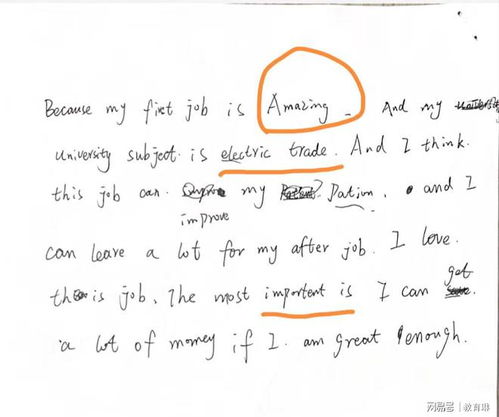 Because my first job is Amazing. And my
university subject. is electric trade. And I think.
this job can. my Pation. and I
improve
can leave a lot for my after job. I love.
get
this job. The most importent is I can
a lot of momey if I. am great enough.
网易号 | 教育琳